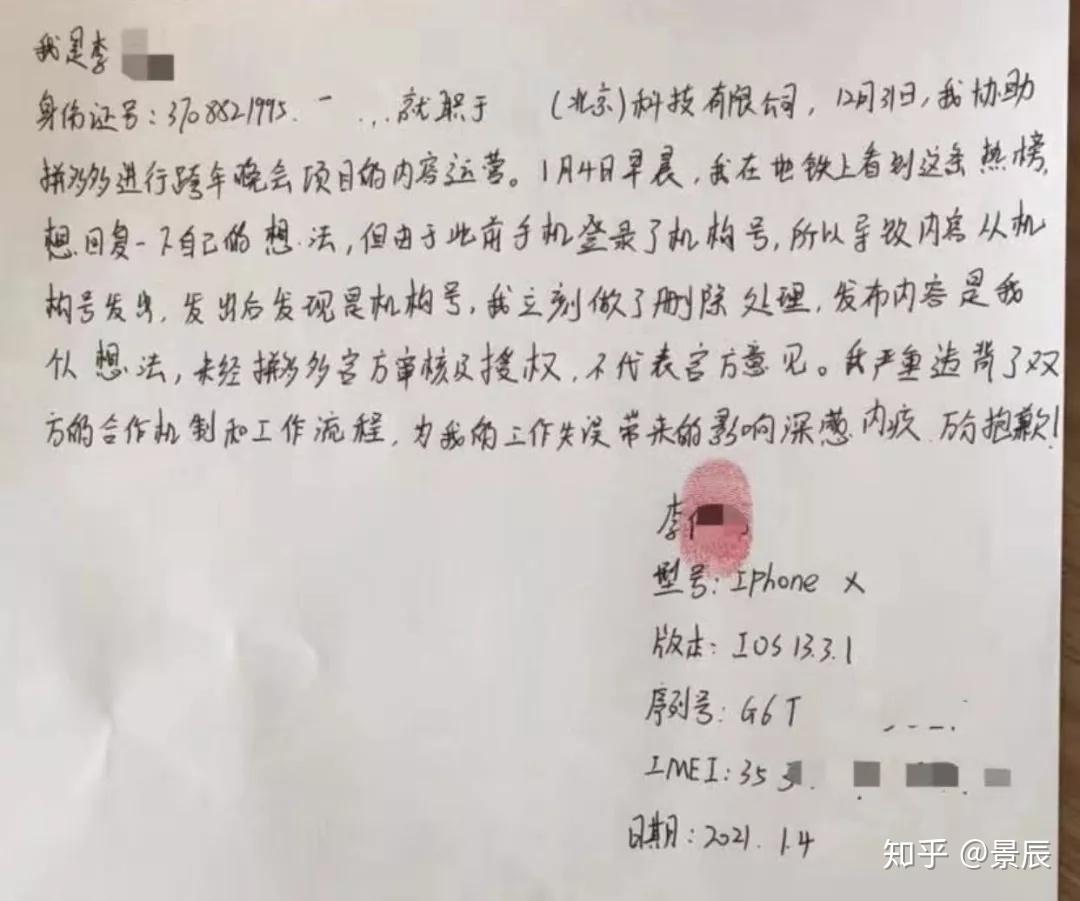 我是李
身份证号：3708821995. 一 ...就职于 （北京）科技有限公司，12月31日，我协助
拼多多进行跨年晚会项目的内容运营。1月4日早晨，我在地铁上看到这条热榜，
想回复一下自己的想法，但由于此前手机登录了机构号，所以导致内容从机
构号发出，发出后发现是机构号，我立刻做了删除处理，发布内容是我
个人想法，未经拼多多官方审核及授权，不代表官方意见。我严重违背了双
方的合作机制和工作流程，为我的工作失误带来的影响深感内疚 万分抱歉！
李
型号：Iphone X
版本：IOS 13.3.1
序列号：G6T
IMEI：353
日期：2021.1.4
知乎 @景辰